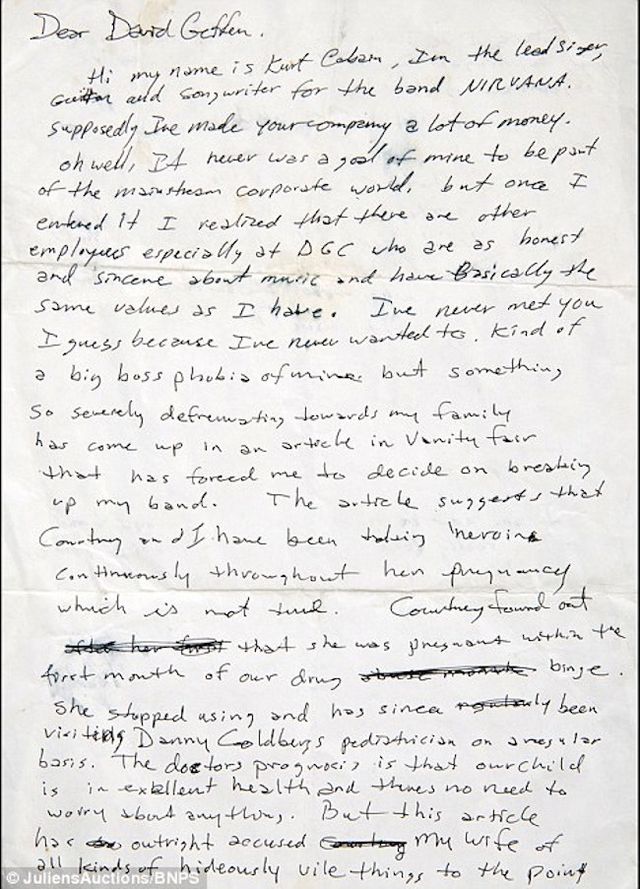 Dear David Geffen.
Hi my name is Kurt Cobain, Im the lead singer,
Guitar and songwriter for the band NIRVANA.
supposedly Ive made your company a lot of money.
oh well, It never was a goal of mine to be part
of the mainstream corporate world. but once I
entered it I realized that there are other
employees especially at DGC who are as honest
and sincere about music and have Basically the
same values as I have. Ive never met you
I guess because Ive never wanted to. Kind of
a big boss phobia of mine. but something
so severely defremating towards my family
has come up in an article in Vanity fair
that has forced me to decide on breaking
up my band. The article suggests that
Courtney and I have been taking heroine
continuously throughout her pregnancy
which is not true. Courtney found out
after her first that she was pregnant within the
first month of our drug abuse binge.
She stopped using and has since regularly been
visiting Danny Goldbergs pediatrician on a regular
basis. The doctors prognosis is that our child
is in exellent health and theres no need to
worry about anything. But this article
has outright accused Courtney My wife of
all kinds of hideously vile things to the point
© JuliensAuctions/BNPS